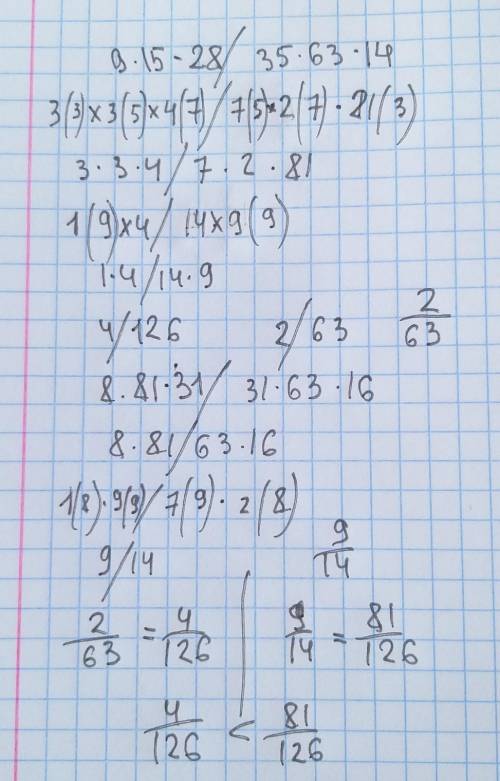 9·15·28/35·63·14
3(3)×3(5)×4(7)/7(5)×2(7)·81(3)
3·3·4/7·2·81
1(9)×4/14×9(9)
1·4/14·9
4/126 2/63 2/63
8·81·31/31·63·16
8·81/63·16
1(8)·9(9)/7(9)·2(8)
9/14 9/14
2/63 = 4/126 9/14 = 81/126
4/126 < 81/126